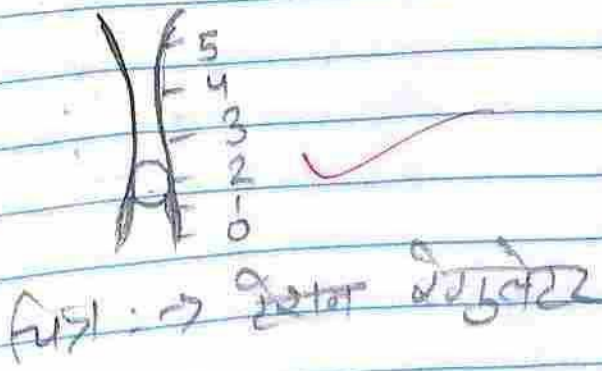 5
4
3
2
1
0
चित्र :→ टेंशन रेगुलेटर